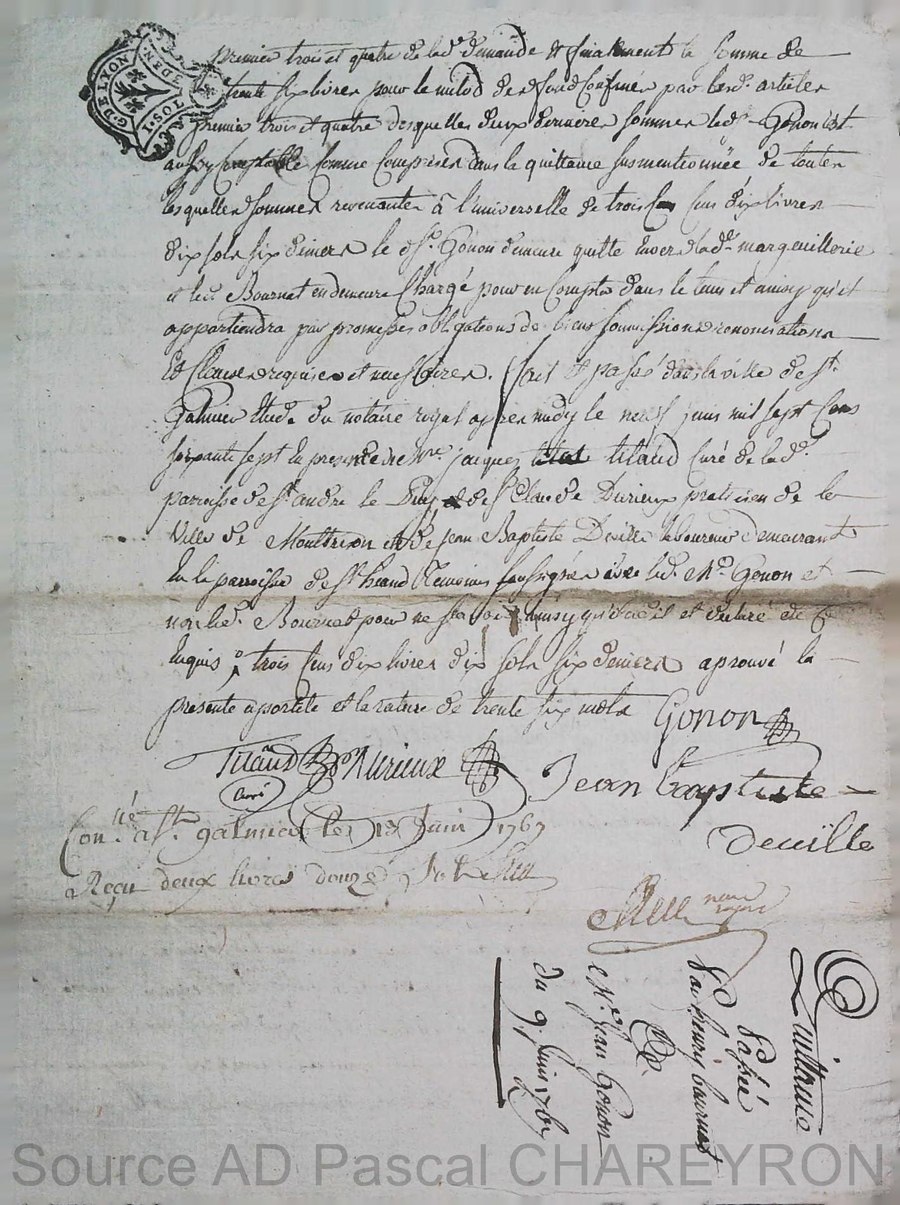 G. DE LYON
1 SOL 3 DEN.
premier trois et quatre de lad.e demande et finalement la somme de
trente six livres pour le milod des fond confinés par lesd. articles
premier trois et quatre desquelles deux dernieres sommes led. Sr Gonon est
aussy comptable comme comprises dans la quittance susmentionnée de toutes
lesquelles sommes revenantes à l'universelle de trois cens dix livres
dix sols six deniers le d. Sr. Gonon demeure quitte envers lad. margeuillerie
et led. Bournat en demeure chargé pour en compter dans le tems et ainsy qu'il
appartiendra par promesses obligations de biens soumissions renonciations
et clauses requises et necessaires. fait et passé dans la ville de st.
Galmier etude du notaire royal apres midy le neuf juin mil sept cens
soixante sept en presence de Mre. jacques titaud curé de lad.
parroisse de st. andre le Puy, de sr. Claude Durieux praticien de la
ville de Montbrison et de jean Baptiste Deville laboureur demeurant
en la parroisse de st. temoins soussignés avec led. Mr. Gonon et
non led. Bournat pour ne sçavoir ainsy qu'il a dit et declaré de ce
enquis trois cens dix livres dix sols six deniers aprouvé la
presente apostile et la rature de trente six mots Gonon
Titaud Durieux Jean baptiste
curé
deville
Con.lé a st. galmier le 18 juin 1767
Reçu deux livres douze sols
notaire royal
Quittance
Passée
Par henry bournat
a
Mr. jean Gonon
du 9 juin 1767
Source AD Pascal CHAREYRON